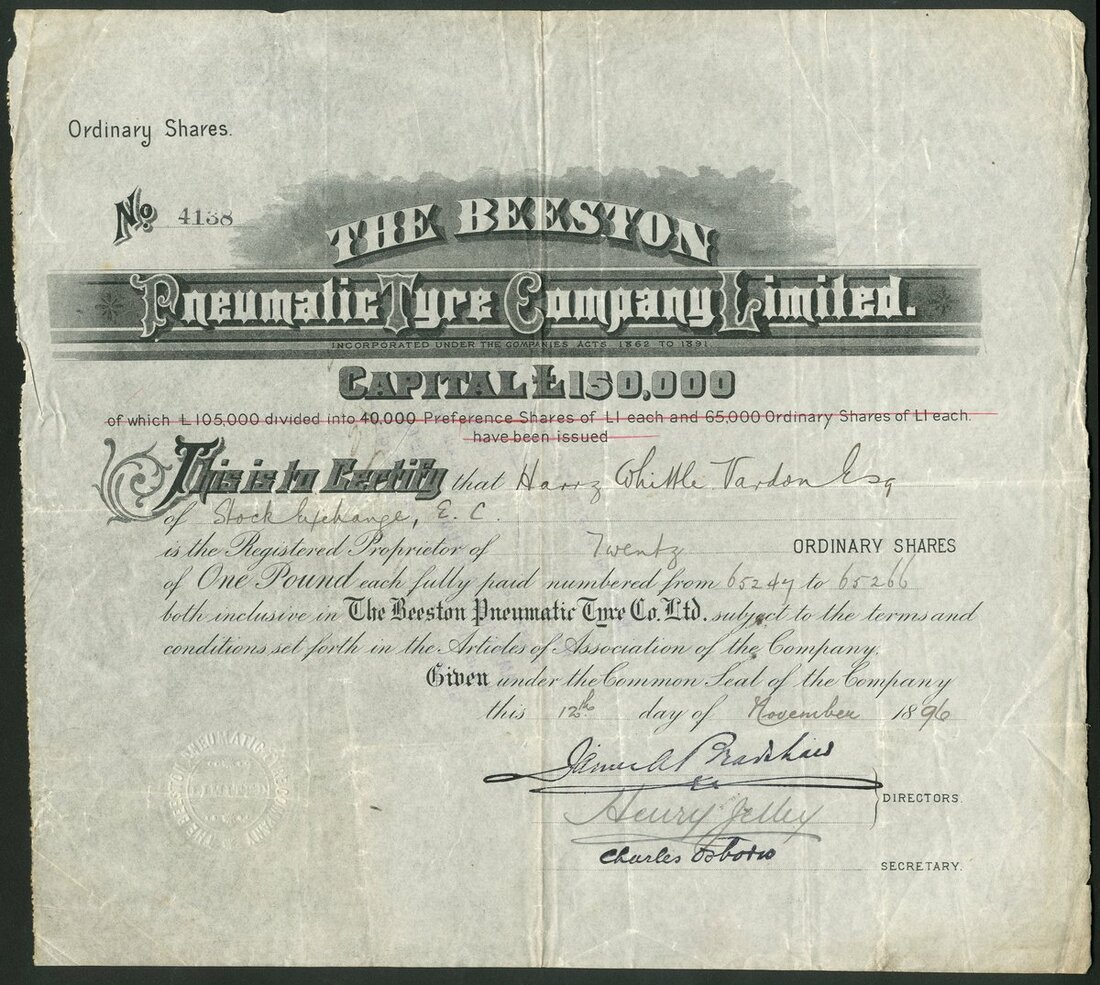 Ordinary Shares.
No. 4138
THE BEESTON
Pneumatic Tyre Company Limited.
INCORPORATED UNDER THE COMPANIES ACTS. 1862 TO 1891.
CAPITAL £150,000
of which £105,000 divided into 40,000 Preference Shares of £1 each and 65,000 Ordinary Shares of £1 each.
have been issued
This is to Certify that Harry Whittle Vardon Esq
of Stock Exchange, E. C.
is the Registered Proprietor of Twenty ORDINARY SHARES
of One Pound each fully paid numbered from 65247 to 65266
both inclusive in The Beeston Pneumatic Tyre Co. Ltd. subject to the terms and
conditions set forth in the Articles of Association of the Company.
Given under the Common Seal of the Company
this 12th day of November 1896
James A Bradshaw
DIRECTORS.
Henry Jelley
Charles Osborn
SECRETARY.